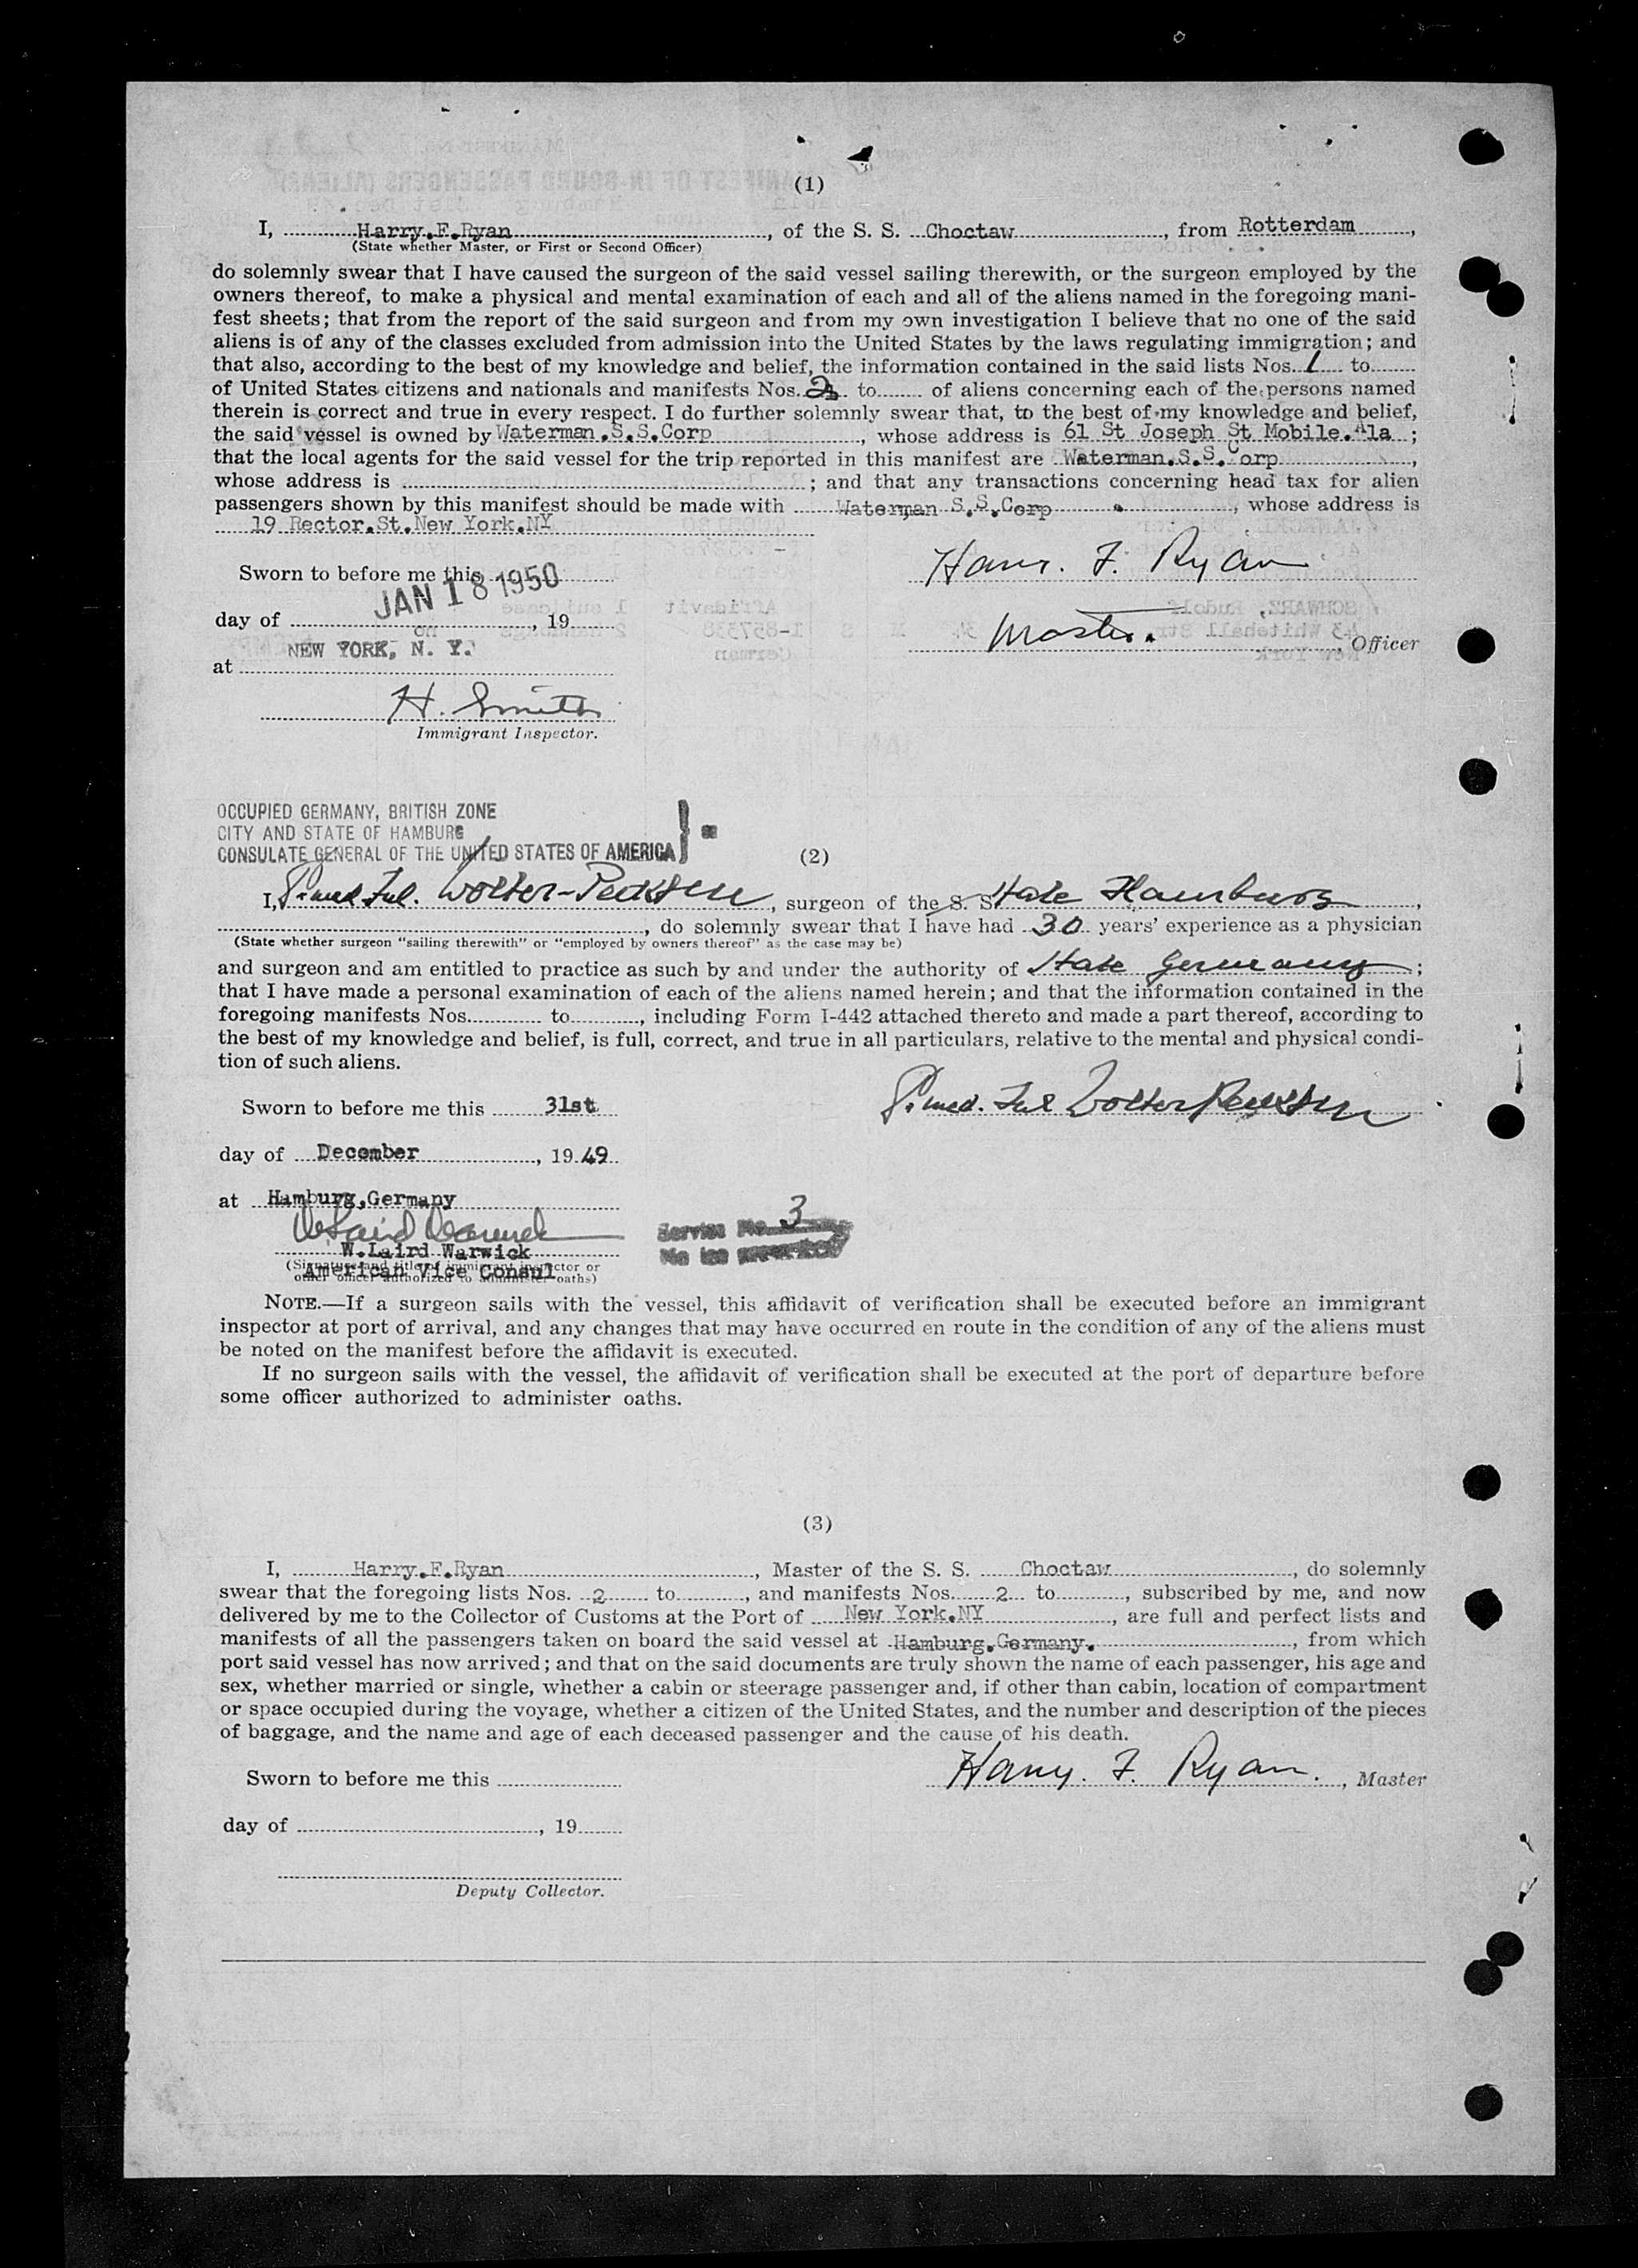 (1)
I, Harry.F.Ryan, of the S. S. Choctaw, from Rotterdam,
(State whether Master, or First or Second Officer)
do solemnly swear that I have caused the surgeon of the said vessel sailing therewith, or the surgeon employed by the
owners thereof, to make a physical and mental examination of each and all of the aliens named in the foregoing mani-
fest sheets; that from the report of the said surgeon and from my own investigation I believe that no one of the said
aliens is of any of the classes excluded from admission into the United States by the laws regulating immigration; and
that also, according to the best of my knowledge and belief, the information contained in the said lists Nos. 1 to
of United States citizens and nationals and manifests Nos. 2 to of aliens concerning each of the persons named
therein is correct and true in every respect. I do further solemnly swear that, to the best of my knowledge and belief,
the said vessel is owned by Waterman.S.S.Corp, whose address is 61 St Joseph St Mobile.Ala;
that the local agents for the said vessel for the trip reported in this manifest are Waterman.S.S.Corp,
whose address is ; and that any transactions concerning head tax for alien
passengers shown by this manifest should be made with Waterman S.S.Corp, whose address is
19 Rector.St.New York.NY
Harry. F. Ryan
Sworn to before me this
JAN 18 1950
day of , 19
Master. , Officer
NEW YORK, N. Y.
at
H. Smith
Immigrant Inspector.
OCCUPIED GERMANY, BRITISH ZONE
CITY AND STATE OF HAMBURG
CONSULATE GENERAL OF THE UNITED STATES OF AMERICA
(2)
I, , surgeon of the S. S. State Hamburg,
, do solemnly swear that I have had 30 years' experience as a physician
(State whether surgeon "sailing therewith" or "employed by owners thereof" as the case may be)
and surgeon and am entitled to practice as such by and under the authority of State Germany;
that I have made a personal examination of each of the aliens named herein; and that the information contained in the
foregoing manifests Nos. to , including Form I-442 attached thereto and made a part thereof, according to
the best of my knowledge and belief, is full, correct, and true in all particulars, relative to the mental and physical condi-
tion of such aliens.
Sworn to before me this 31st
day of December, 19 49
at Hamburg,Germany
W.Laird Warwick
American Vice Consul
(Signature and title of immigrant inspector or
other officer authorized to administer oaths)
Service No. 3
No fee prescribed
NOTE.—If a surgeon sails with the vessel, this affidavit of verification shall be executed before an immigrant
inspector at port of arrival, and any changes that may have occurred en route in the condition of any of the aliens must
be noted on the manifest before the affidavit is executed.
If no surgeon sails with the vessel, the affidavit of verification shall be executed at the port of departure before
some officer authorized to administer oaths.
(3)
I, Harry.F.Ryan, Master of the S. S. Choctaw, do solemnly
swear that the foregoing lists Nos. 2 to , and manifests Nos. 2 to , subscribed by me, and now
delivered by me to the Collector of Customs at the Port of New York.NY, are full and perfect lists and
manifests of all the passengers taken on board the said vessel at Hamburg.Germany., from which
port said vessel has now arrived; and that on the said documents are truly shown the name of each passenger, his age and
sex, whether married or single, whether a cabin or steerage passenger and, if other than cabin, location of compartment
or space occupied during the voyage, whether a citizen of the United States, and the number and description of the pieces
of baggage, and the name and age of each deceased passenger and the cause of his death.
Harry. F. Ryan. , Master
Sworn to before me this
day of , 19
Deputy Collector.